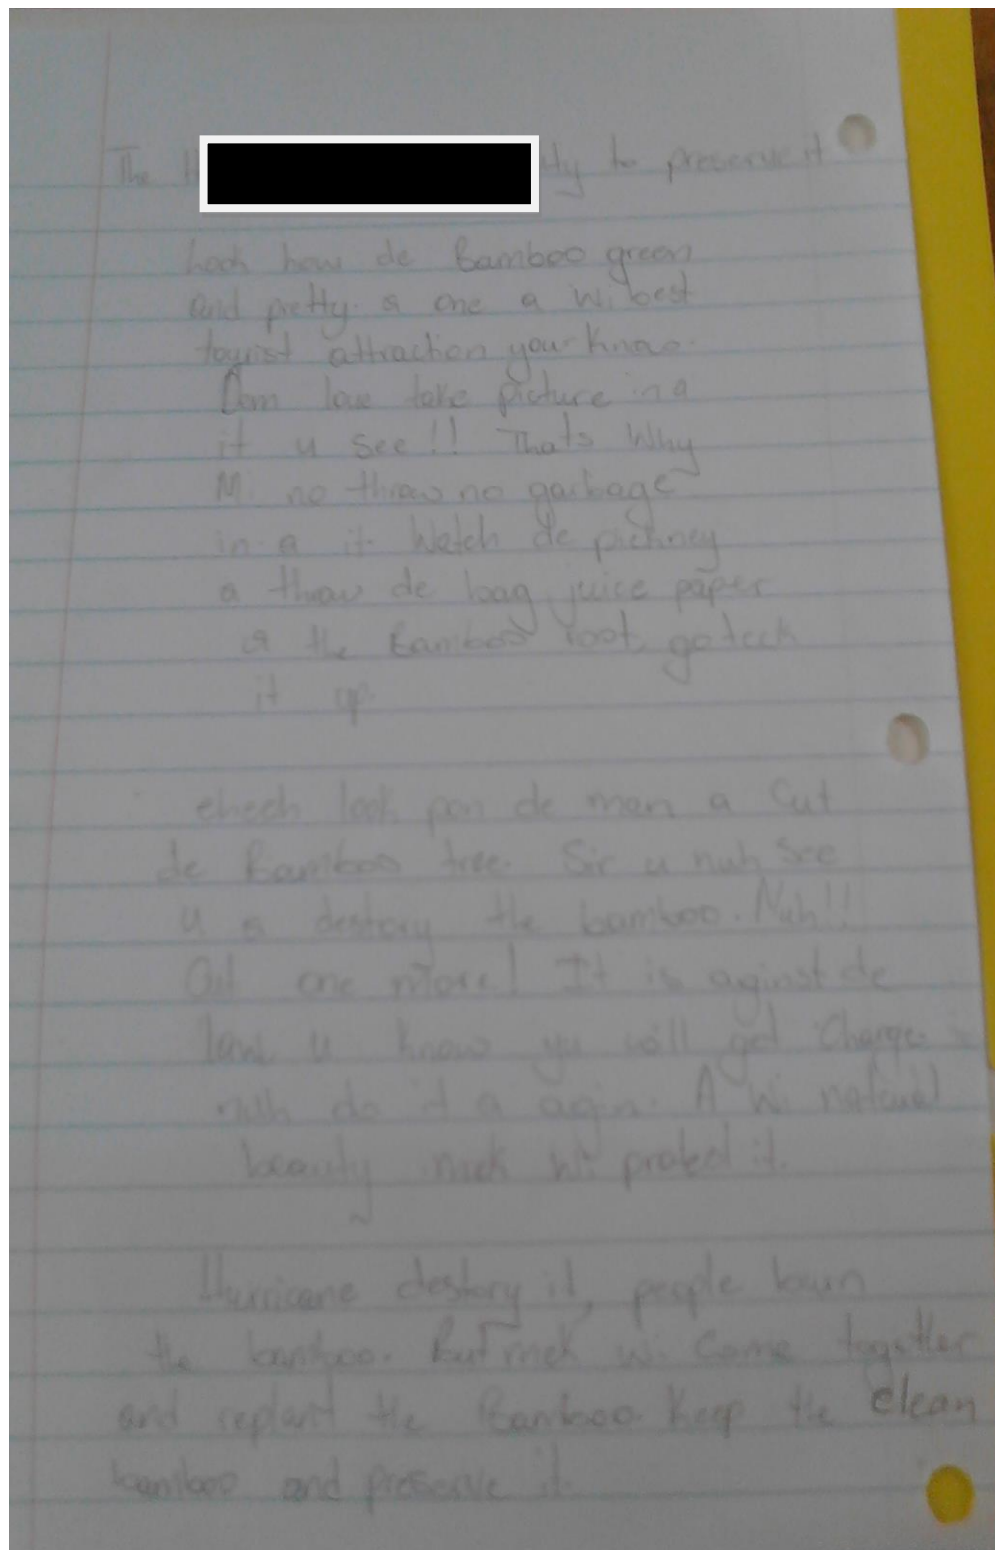 The ty to preserve it
Look how de Bamboo green
and pretty. a one a Wi best
tourist attraction you know.
Dem love take picture in a
it u see!! Thats Why
Mi no throw no garbage
in a it. Watch de pickney
a throw de bag juice paper
a the Bamboo root, go teck
it up.
eheeh look pon de man a Cut
de Bamboo tree. Sir u nuh see
u a destory the bamboo. Nuh!!
Cut one more! It is aginst de
law u know yu will get Charge
nuh do it a agin. A Wi natural
beauty mek wi protect it.
Hurricane destory it, people burn
the bamboo. But mek wi Come together
and replant the Bamboo. Keep the clean
bamboo and preserve it.